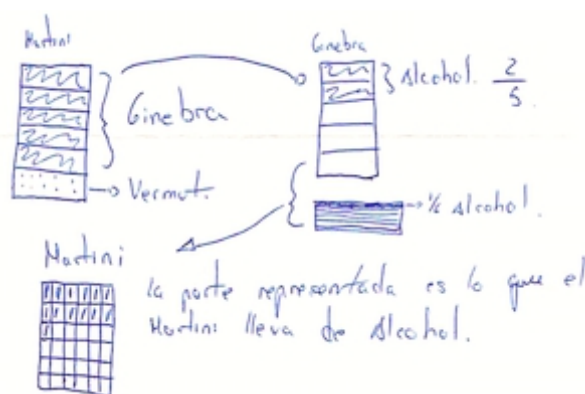 Martini
Ginebra
Alcohol. 2/5
Ginebra
Vermut.
1/6 Alcohol.
Martini
la parte representada es lo que el
Martini lleva de Alcohol.